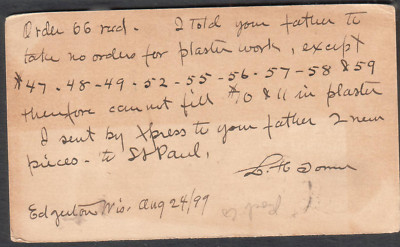 Order 66 recd. I told your father to
take no orders for plaster work, except
#47 - 48 - 49 - 52 - 55 - 56 - 57 - 58 & 59
therefore cannot fill #10 & 11 in plaster
I sent by Xpress to your father 2 new
pieces - to St Paul.
L. H.
Edgerton Wis. Aug 24/97